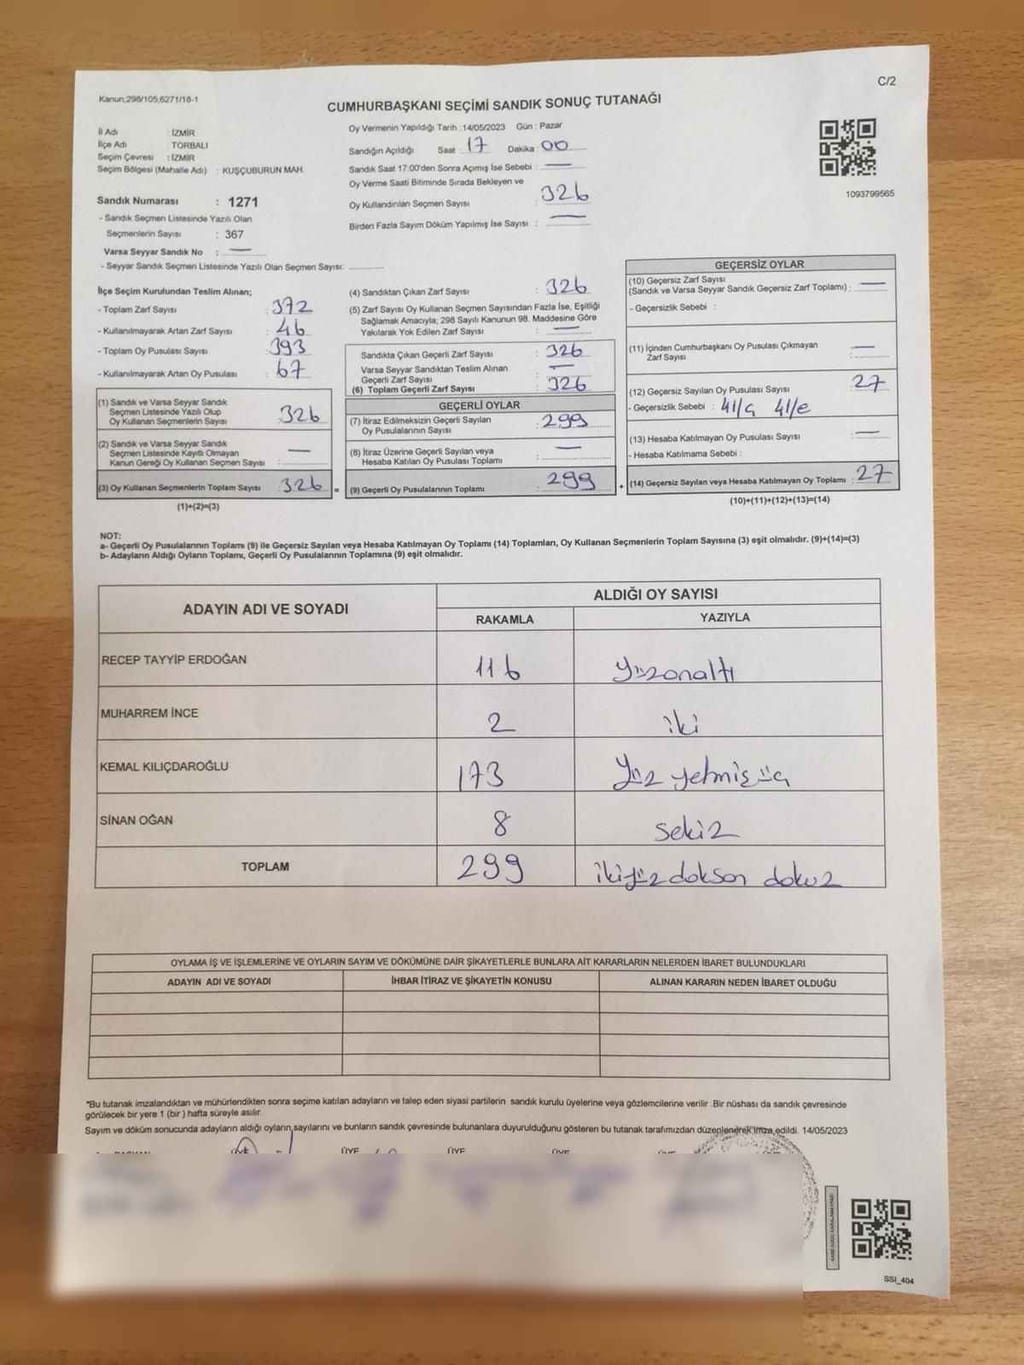 C/2
Kanun;298/105,6271/16-1
CUMHURBAŞKANI SEÇİMİ SANDIK SONUÇ TUTANAĞI
İl Adı : İZMİR
İlçe Adı : TORBALI
Seçim Çevresi : İZMİR
Seçim Bölgesi (Mahalle Adı) : KUŞÇUBURUN MAH.
Sandık Numarası : 1271
- Sandık Seçmen Listesinde Yazılı Olan
Seçmenlerin Sayısı : 367
Varsa Seyyar Sandık No : —
- Seyyar Sandık Seçmen Listesinde Yazılı Olan Seçmen Sayısı:
Oy Vermenin Yapıldığı Tarih :14/05/2023 Gün : Pazar
Sandığın Açıldığı Saat : 17 Dakika : 00
Sandık Saat 17:00'den Sonra Açımış İse Sebebi : —
Oy Verme Saati Bitiminde Sırada Bekleyen ve
Oy Kullandırılan Seçmen Sayısı : 326
Birden Fazla Sayım Döküm Yapılmış İse Sayısı : —
1093799565
İlçe Seçim Kurulundan Teslim Alınan;
- Toplam Zarf Sayısı : 372
- Kullanılmayarak Artan Zarf Sayısı : 46
- Toplam Oy Pusulası Sayısı : 393
- Kullanılmayarak Artan Oy Pusulası : 67
(1) Sandık ve Varsa Seyyar Sandık
Seçmen Listesinde Yazılı Olup
Oy Kullanan Seçmenlerin Sayısı : 326
(2) Sandık ve Varsa Seyyar Sandık
Seçmen Listesinde Kayıtlı Olmayan
Kanun Gereği Oy Kullanan Seçmen Sayısı : —
(3) Oy Kullanan Seçmenlerin Toplam Sayısı : 326
(1)+(2)=(3)
(4) Sandıktan Çıkan Zarf Sayısı : 326
(5) Zarf Sayısı Oy Kullanan Seçmen Sayısından Fazla İse, Eşitliği
Sağlamak Amacıyla; 298 Sayılı Kanunun 98. Maddesine Göre
Yakılarak Yok Edilen Zarf Sayısı : —
Sandıkta Çıkan Geçerli Zarf Sayısı : 326
Varsa Seyyar Sandıktan Teslim Alınan
Geçerli Zarf Sayısı : —
(6) Toplam Geçerli Zarf Sayısı : 326
GEÇERLİ OYLAR
(7) İtiraz Edilmeksizin Geçerli Sayılan
Oy Pusulalarının Sayısı : 299
(8) İtiraz Üzerine Geçerli Sayılan veya
Hesaba Katılan Oy Pusulası Toplamı : —
= (9) Geçerli Oy Pusulalarının Toplamı : 299
GEÇERSİZ OYLAR
(10) Geçersiz Zarf Sayısı
(Sandık ve Varsa Seyyar Sandık Geçersiz Zarf Toplamı) : —
- Geçersizlik Sebebi :
(11) İçinden Cumhurbaşkanı Oy Pusulası Çıkmayan
Zarf Sayısı : —
(12) Geçersiz Sayılan Oy Pusulası Sayısı : 27
- Geçersizlik Sebebi : 41/a 41/e
(13) Hesaba Katılmayan Oy Pusulası Sayısı : —
- Hesaba Katılmama Sebebi :
+ (14) Geçersiz Sayılan veya Hesaba Katılmayan Oy Toplamı : 27
(10)+(11)+(12)+(13)=(14)
NOT:
a- Geçerli Oy Pusulalarının Toplamı (9) ile Geçersiz Sayılan veya Hesaba Katılmayan Oy Toplamı (14) Toplamları, Oy Kullanan Seçmenlerin Toplam Sayısına (3) eşit olmalıdır. (9)+(14)=(3)
b- Adayların Aldığı Oyların Toplamı, Geçerli Oy Pusulalarının Toplamına (9) eşit olmalıdır.
ADAYIN ADI VE SOYADI
ALDIĞI OY SAYISI
RAKAMLA YAZIYLA
RECEP TAYYİP ERDOĞAN 116 yüzonaltı
MUHARREM İNCE 2 iki
KEMAL KILIÇDAROĞLU 173 Yüz yetmiş üç
SİNAN OĞAN 8 sekiz
TOPLAM 299 ikiyüz doksan dokuz
OYLAMA İŞ VE İŞLEMLERİNE VE OYLARIN SAYIM VE DÖKÜMÜNE DAİR ŞİKAYETLERLE BUNLARA AİT KARARLARIN NELERDEN İBARET BULUNDUKLARI
ADAYIN ADI VE SOYADI İHBAR İTİRAZ VE ŞİKAYETİN KONUSU ALINAN KARARIN NEDEN İBARET OLDUĞU
*Bu tutanak imzalandıktan ve mühürlendikten sonra seçime katılan adayların ve talep eden siyasi partilerin sandık kurulu üyelerine veya gözlemcilerine verilir .Bir nüshası da sandık çevresinde
görülecek bir yere 1 (bir ) hafta süreyle asılır.
Sayım ve döküm sonucunda adayların aldığı oyların sayılarını ve bunların sandık çevresinde bulunanlara duyurulduğunu gösteren bu tutanak tarafımızdan düzenlenerek imza edildi. 14/05/2023
BAŞKAN ÜYE ÜYE ÜYE ÜYE
SSI_404